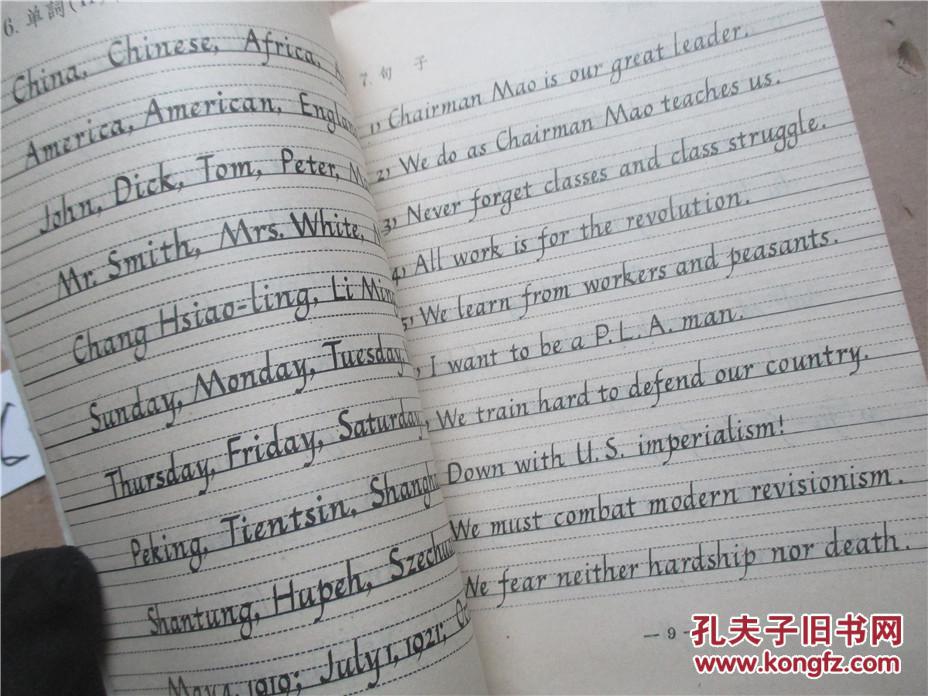 6. 单詞
China, Chinese, Africa,
America, American,
John, Dick, Tom, Peter,
Mr. Smith, Mrs. White,
Chang Hsiao-ling, Li
Sunday, Monday, Tuesday,
Thursday, Friday, Saturday,
Peking, Tientsin,
Shantung, Hupeh,
1919; July 1, 1921;
7. 句 子
1) Chairman Mao is our great leader.
2) We do as Chairman Mao teaches us.
3) Never forget classes and class struggle.
4) All work is for the revolution.
5) We learn from workers and peasants.
I want to be a P.L.A. man.
We train hard to defend our country.
Down with U.S. imperialism!
We must combat modern revisionism.
We fear neither hardship nor death.
— 9 -
孔夫子旧书网
www.kongfz.com